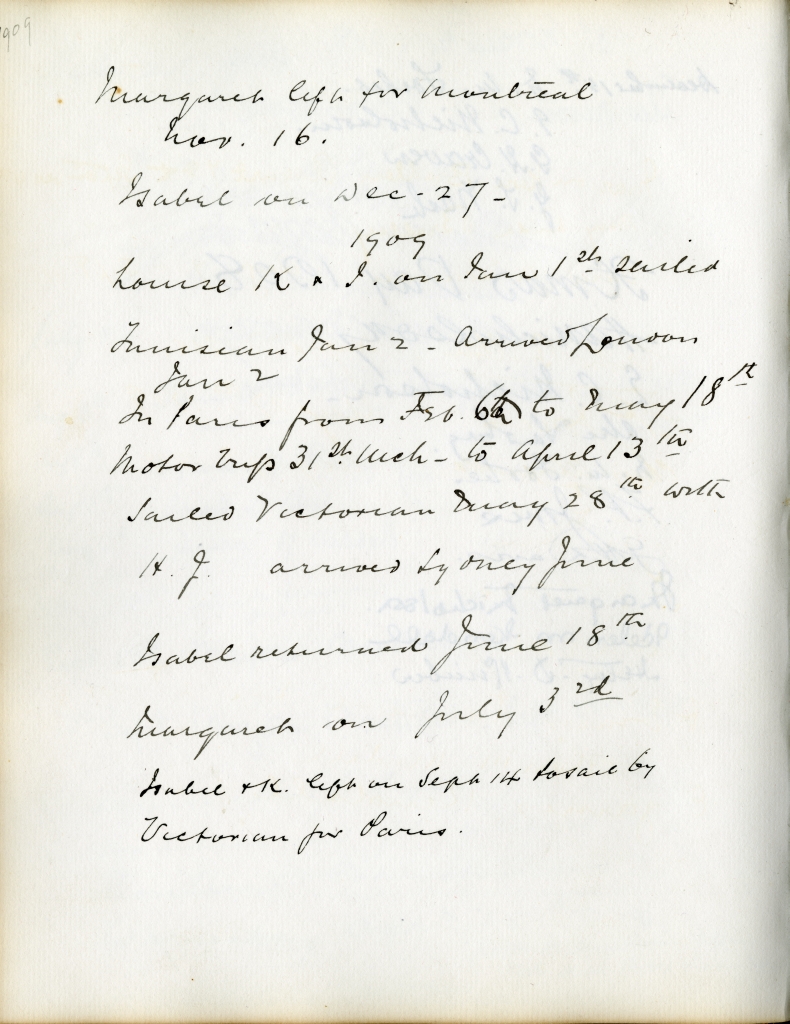 1909
Margaret left for Montreal
Nov. 16.
Isabel on Dec - 27 -
1909
Louise K & I. on Jan 1st sailed
Tunisian Jan 2 - Arrived London
Jan 2
In Paris from Feb. 6th to May 18th
Motor trip 31st Mch - to April 13th
Sailed Victorian May 28th with
H. J. arrived Sydney June
Isabel returned June 18th
Margaret on July 3rd
Isabel & K. left on Sept 14 to sail by
Victorian for Paris.